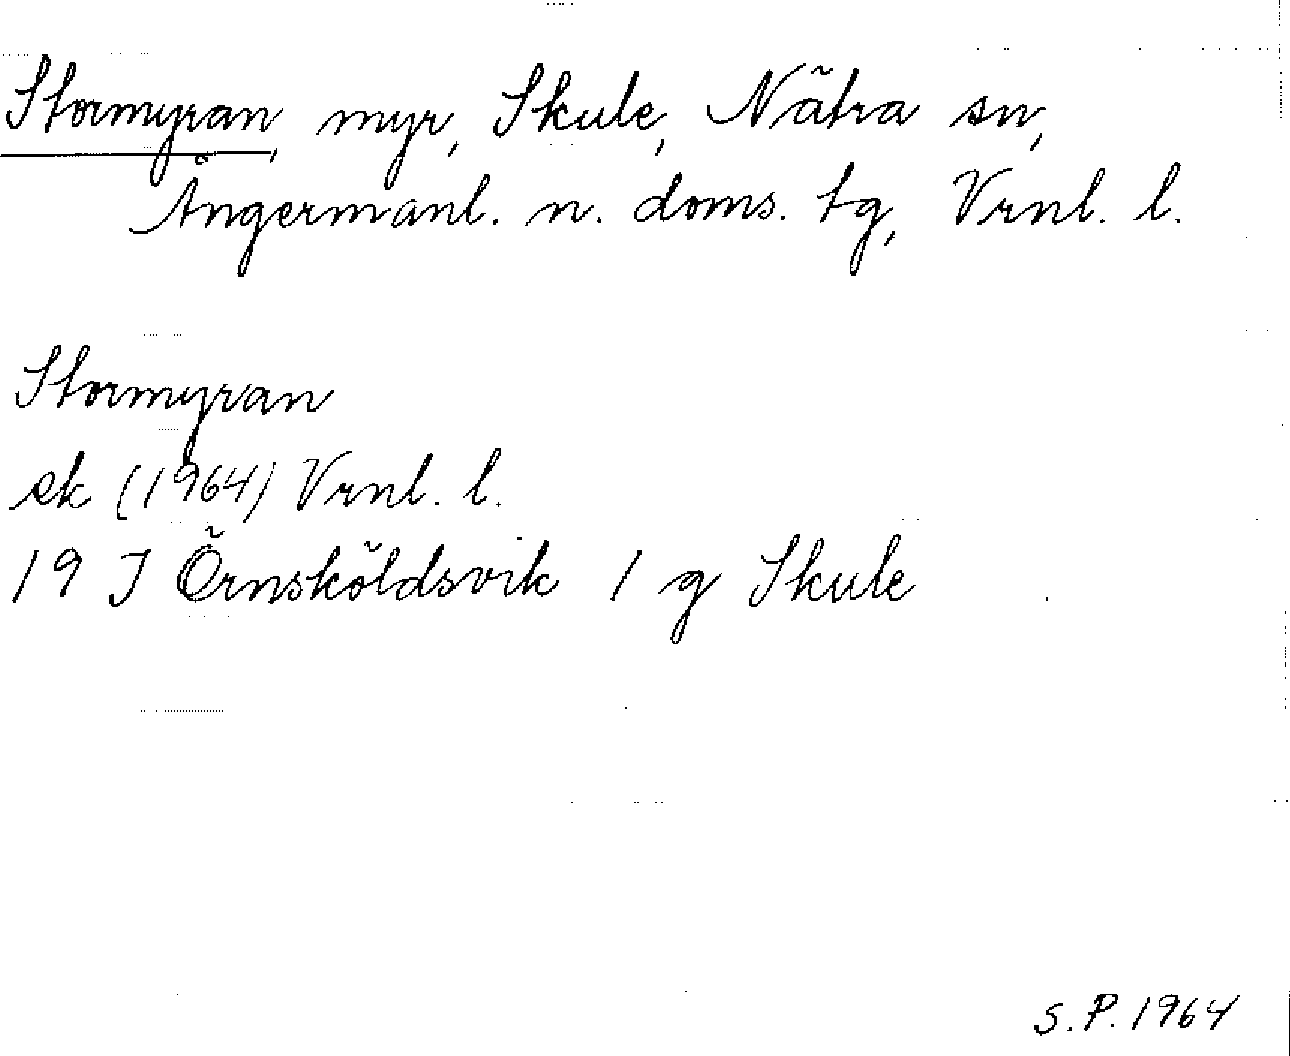 Stormyran, myr, Skule, Nätra sn,
Ångermanl. n. doms. tg, Vrnl. l.
Stormyran
ek (1964) Vrnl. l.
19 J Örnsköldsvik 1 g Skule
S.P. 1964